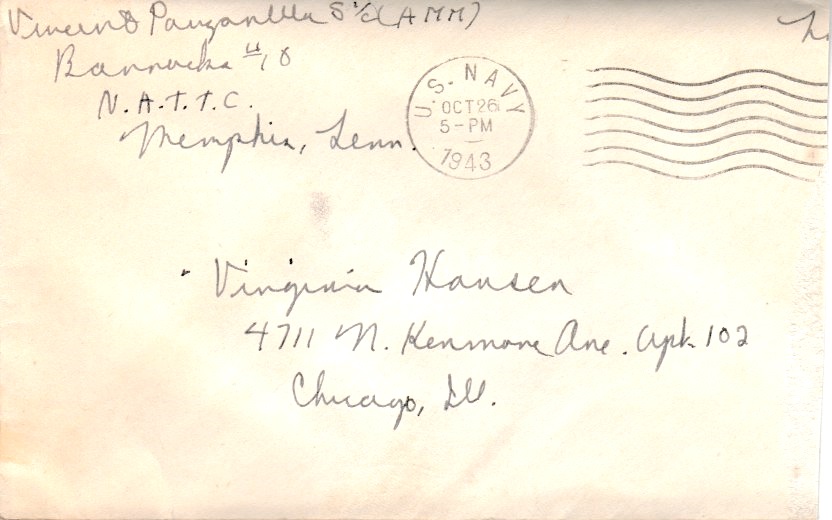 Vincent Panzanella S 2/c (AMM)
Barracks 4, 8
N.A.T.T.C.
Memphis, Tenn.
U.S. NAVY
OCT 26
5-PM
1943
Virginia Hansen
4711 N. Kenmore Ave. Apt. 102
Chicago, Ill.